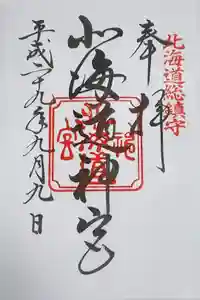 北海道総鎮守
奉拝
北海道神宮
平成二十九年九月九日